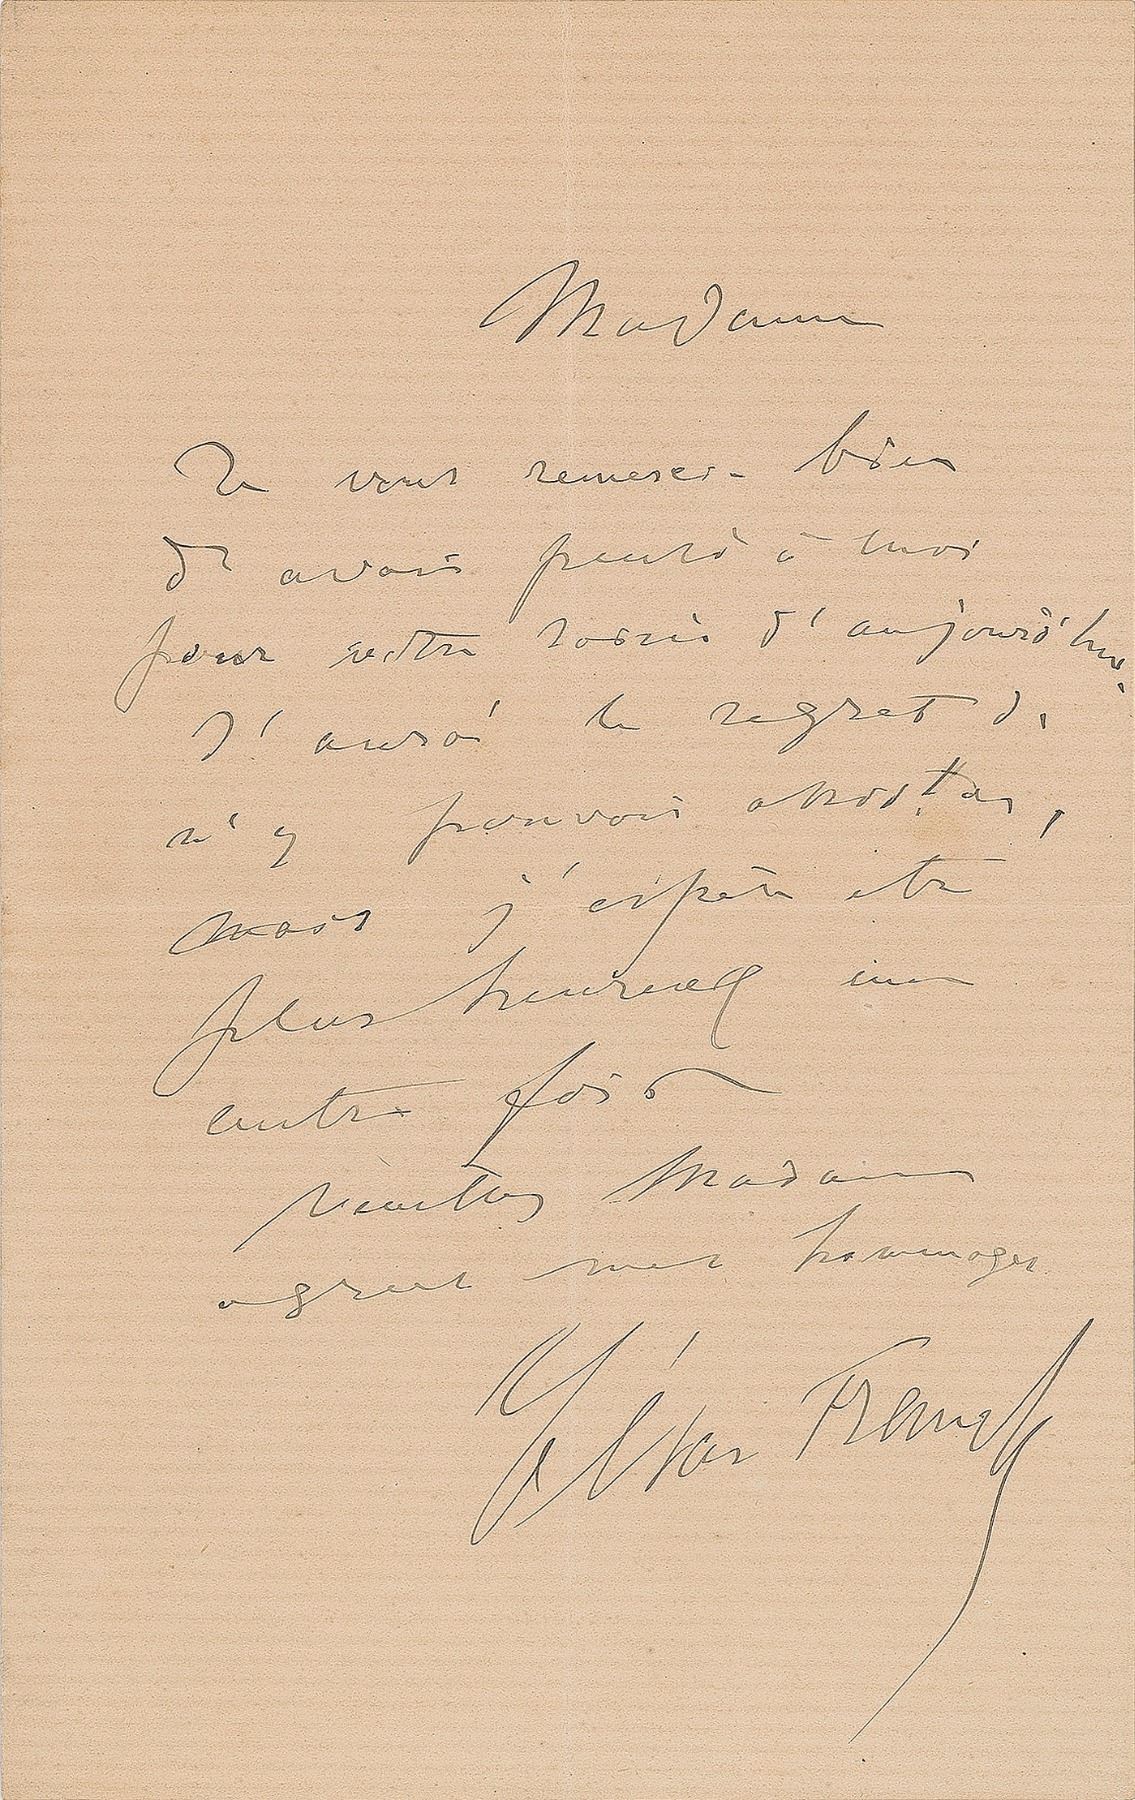 Madame
Je vous remercie bien
de avoir pensé à moi
pour votre soirée d'aujourd'hui.
J'aurai le regret de
n'y pouvoir assister,
mais j'espère être
plus heureux une
autre fois
veuillez Madame
agréer mes hommages
César Franck